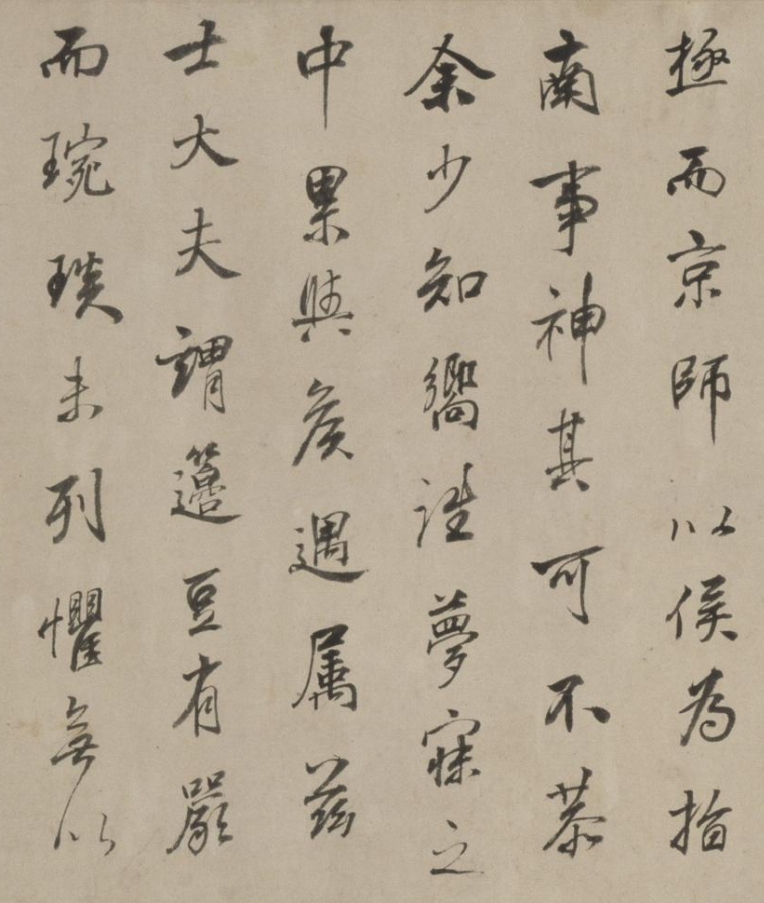 極而京師以侯為指
南事神其可不恭
余少知嚮往夢寐之
中累與侯遇属兹
士大夫謂籩豆有嚴
而琬琰未列懼無以